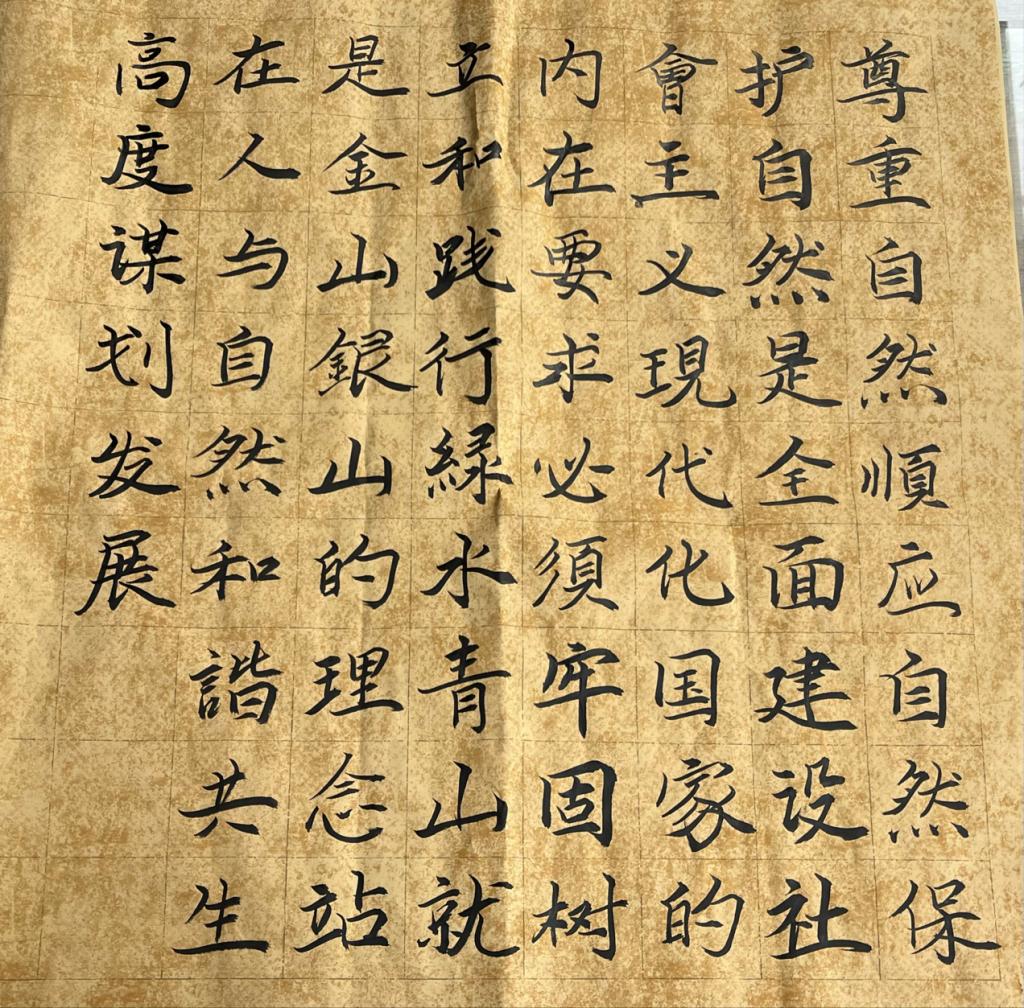 尊重自然順应自然保
护自然是全面建设社
會主义現代化国家的
内在要求必須牢固树
立和践行緑水青山就
是金山銀山的理念站
在人与自然和諧共生
高度谋划发展